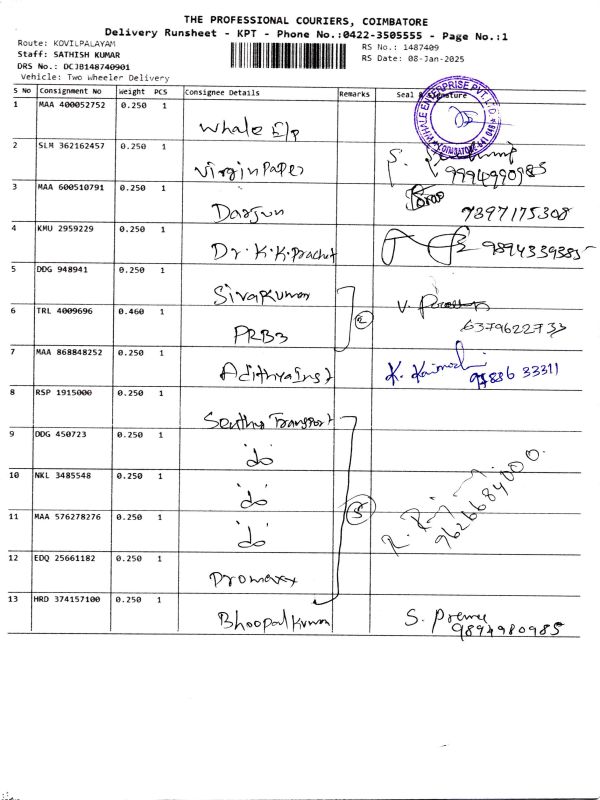 THE PROFESSIONAL COURIERS, COIMBATORE
Delivery Runsheet - KPT - Phone No.:0422-3505555 - Page No.:1
Route: KOVILPALAYAM
RS No.: 1487409
Staff: SATHISH KUMAR
RS Date: 08-Jan-2025
DRS No.: DCJB148740901
Vehicle: Two Wheeler Delivery
S No Consignment No Weight PCS Consignee Details Remarks Seal & Signature
1 MAA 400052752 0.250 1 Whale E/p WHALE ENTERPRISE PVT. LTD.
2 SLM 362162457 0.250 1 Virgin Paper S.
9994990985
3 MAA 600510791 0.250 1 Darjun
7397175308
4 KMU 2959229 0.250 1 Dr. K.K. 9894339385
5 DDG 948941 0.250 1 Sivakumar V.
6 TRL 4009696 0.460 1 PRB3 2 6379622733
7 MAA 868848252 0.250 1 Adithya Inst K.
98886 33311
8 RSP 1915000 0.250 1 Senthur Transport
9 DDG 450723 0.250 1 do
10 NKL 3485548 0.250 1 do
11 MAA 576278276 0.250 1 do 5 R.
9626684000
12 EDQ 25661182 0.250 1 Promaxx
13 HRD 374157100 0.250 1 Bhoopal Kumar S. Preme
9894980985